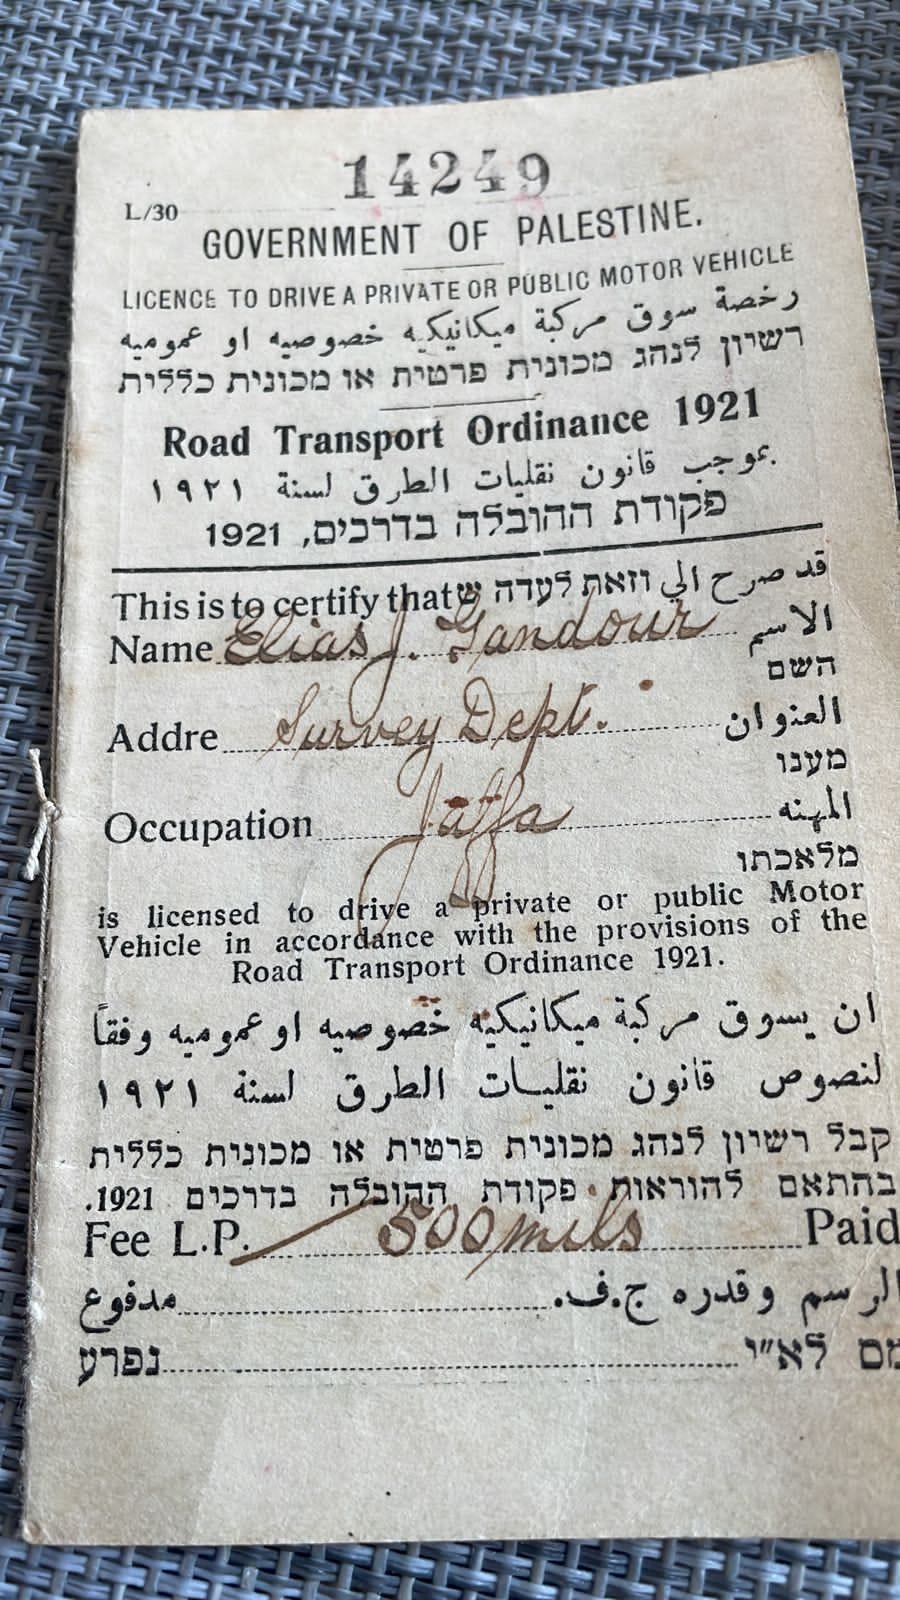 14249
L/30
GOVERNMENT OF PALESTINE.
LICENCE TO DRIVE A PRIVATE OR PUBLIC MOTOR VEHICLE
رخصة سوق مركبة ميكانيكيه خصوصيه او عموميه
רשיון לנהג מכונית פרטית או מכונית כללית
Road Transport Ordinance 1921
بموجب قانون نقليات الطرق لسنة ١٩٢١
פקודת ההובלה בדרכים, 1921
This is to certify that וזאת לעדה ש قد صرح الي
Name Elias J. Gandour الاسم
השם
Addre Survey Dept. العنوان
מענו
Occupation Jaffa المهنه
מלאכתו
is licensed to drive a private or public Motor
Vehicle in accordance with the provisions of the
Road Transport Ordinance 1921.
ان يسوق مركبة ميكانيكيه خصوصيه او عموميه وفقاً
لنصوص قانون نقليات الطرق لسنة ١٩٢١
קבל רשיון לנהג מכונית פרטית או מכונית כללית
בהתאם להוראות פקודת ההובלה בדרכים 1921.
Fee L.P. 500 mils Paid
الرسم وقدره ج.ف. مدفوع
לא"י נפרע